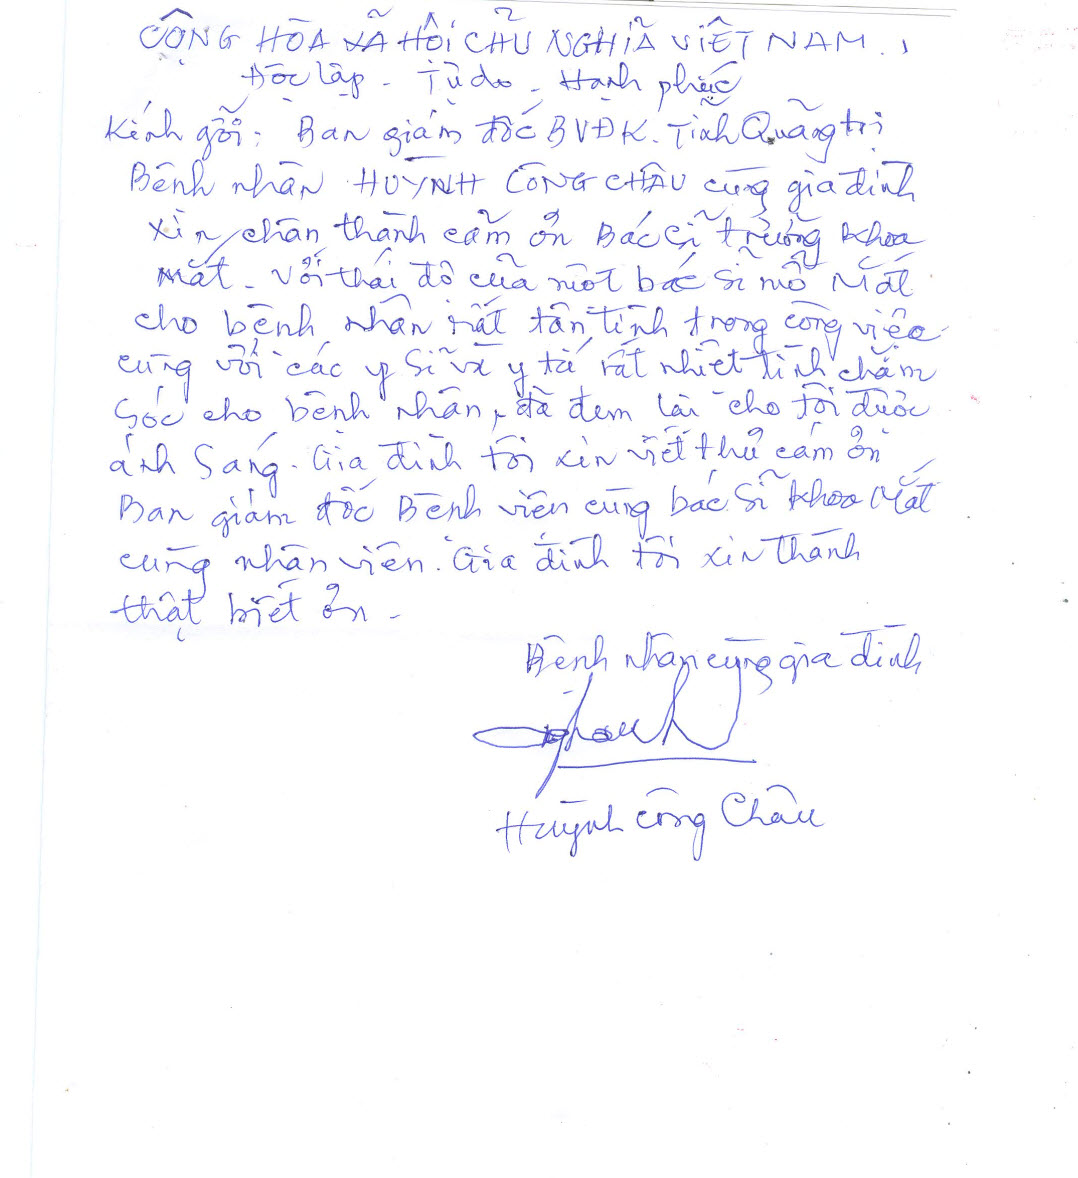 CỘNG HÒA XÃ HỘI CHỦ NGHĨA VIỆT NAM.
Độc lập - Tự do - Hạnh phúc
Kính gỗi: Ban giám đốc BVĐK. Tĩnh Quãng trị
Bệnh nhân HUỲNH CÔNG CHÂU cùng gia đình
xin chân thành cãm ơn Bác sĩ trưởng khoa
mắt. Với thái độ cũa một bác sĩ mỗ Mắt
cho bệnh nhân rất tận tình trong công việc
cùng với các y sĩ và y tá rất nhiệt tình chăm
sóc cho bệnh nhân, đã đem lại cho tôi được
ánh sáng. Gia đình tôi xin viết thư cám ơn
Ban giám đốc Bệnh viện cùng bác sĩ khoa Mắt
cùng nhân viên. Gia đình tôi xin thành
thật biết ơn.
Bệnh nhân cùng gia đình
Huỳnh Công Châu